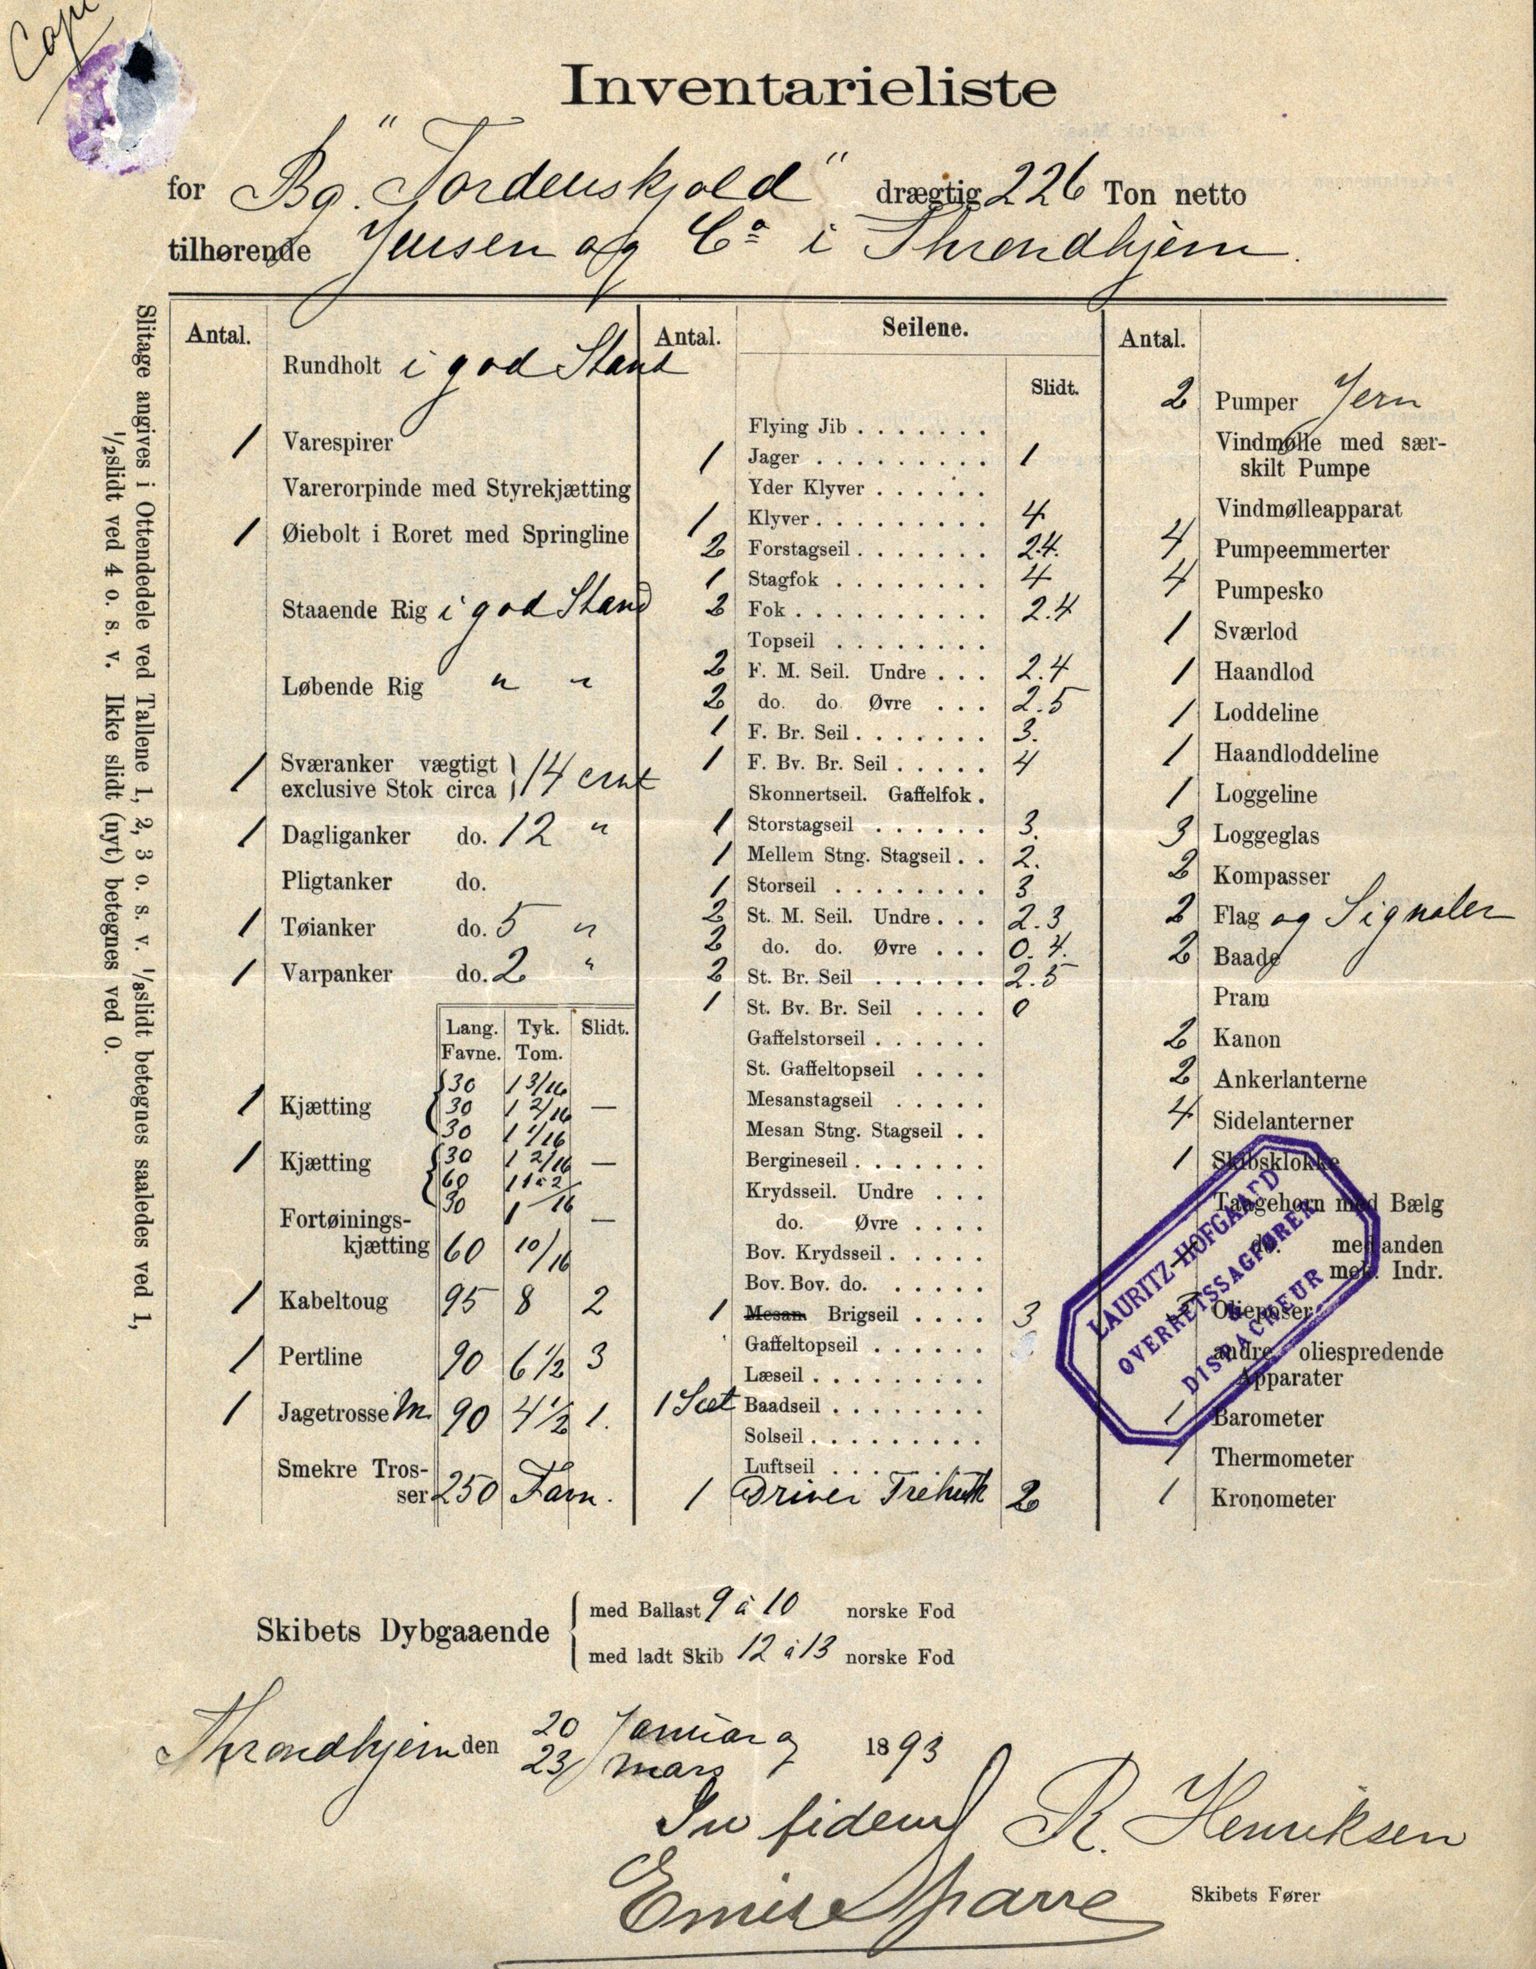 Copi
Inventarieliste
for Bg. "Tordenskjold" drægtig 226 Ton netto
tilhørende Jensen og Co i Throndhjem.
Slitage angives i Ottendedele ved Tallene 1, 2, 3 o. s. v. 1/8slidt betegnes saaledes ved 1,
1/2slidt ved 4 o. s. v. Ikke slidt (nyt) betegnes ved 0.
Antal.
Rundholt i god Stand
1 Varespirer
Varerorpinde med Styrekjætting
1 Øiebolt i Roret med Springline
Staaende Rig i god Stand
Løbende Rig " "
1 Sværanker vægtigt
exclusive Stok circa } 14 cwt
1 Dagliganker do. 12 "
Pligtanker do.
1 Tøianker do. 5 "
1 Varpanker do. 2 "
Lang. Tyk. Slidt.
Favne. Tom.
30 1 3/16
1 Kjætting 30 1 2/16 —
30 1 1/16
30 1 2/16
1 Kjætting 60 —
30
Fortøinings- —
kjætting 60 10/16
1 Kabeltoug 95 8 2
1 Pertline 90 6 1/2 3
1 Jagetrosse 90 4 1/2 1.
Smekre Tros-
ser 250 Favn.
Antal. Seilene.
Slidt.
Flying Jib . . . . . . .
1 Jager . . . . . . . . . 1
Yder Klyver . . . . . .
1 Klyver . . . . . . . . . 4
2 Forstagseil . . . . . . . 2.4.
1 Stagfok . . . . . . . . 4
2 Fok . . . . . . . . . . 2.4
Topseil . . . . . . . .
2 F. M. Seil. Undre . . . 2.4
2 do. do. Øvre . . . 2.5
1 F. Br. Seil . . . . . . . 3.
1 F. Bv. Br. Seil . . . . . 4
Skonnertseil. Gaffelfok .
1 Storstagseil . . . . . . 3.
1 Mellem Stng. Stagseil . . 2.
1 Storseil . . . . . . . . 3
2 St. M. Seil. Undre . . . 2.3
2 do. do. Øvre . . . 0.4.
2 St. Br. Seil . . . . . . 2.5
1 St. Bv. Br. Seil . . . . 0
Gaffelstorseil . . . . . .
St. Gaffeltopseil . . . .
Mesanstagseil . . . . .
Mesan Stng. Stagseil . .
Bergineseil . . . . . . .
Krydsseil. Undre . . .
do. Øvre . . . .
Bov. Krydsseil . . . . .
Bov. Bov. do. . . . . .
1 Mesan Brigseil . . . . 3
Gaffeltopseil . . . . . .
Læseil . . . . . . . . .
1 Sæt Baadseil . . . . . . . .
Solseil . . . . . . . . .
Luftseil . . . . . . .
1 Driver 2
Antal.
2 Pumper Jern
Vindmølle med sær-
skilt Pumpe
Vindmølleapparat
4 Pumpeemmerter
4 Pumpesko
1 Sværlod
1 Haandlod
1 Loddeline
1 Haandloddeline
1 Loggeline
3 Loggeglas
2 Kompasser
2 Flag og Signaler
2 Baade
Pram
2 Kanon
2 Ankerlanterne
4 Sidelanterner
1 Skibsklokke
Taagehorn med Bælg
do. med anden
mek. Indr.
Olieposer
andre oliespredende
Apparater
1 Barometer
1 Thermometer
1 Kronometer
LAURITZ HOFGAARD
OVERRETSSAGFØRER
&
DISPACHEUR
Skibets Dybgaaende
med Ballast 9 à 10 norske Fod
med ladt Skib 12 à 13 norske Fod
Throndhjem den 20 Januar og 1893
23 mars
In fidem R. Henriksen
Emil Sparre Skibets Fører